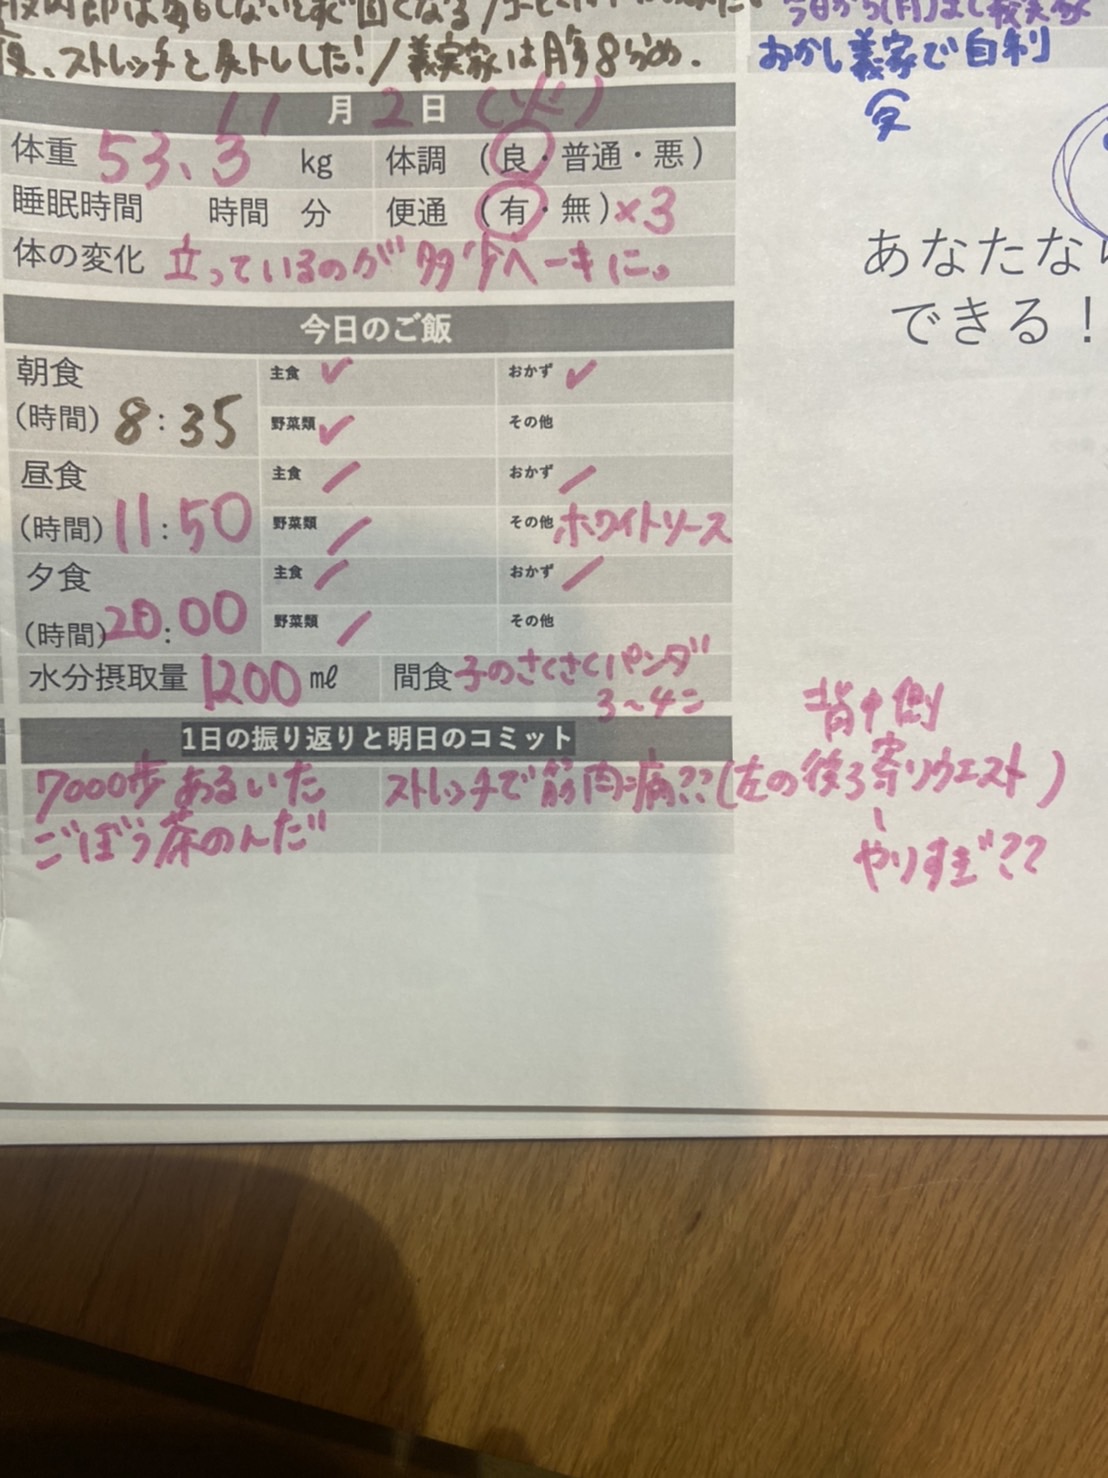 夜、ストレッチと炭トレした!/義実家は腹8分め.
おかし義家で自利
11月2日(火)
体重 53.3 kg 体調 (良・普通・悪)
睡眠時間 時間 分 便通 (有・無)×3
体の変化 立っているのが多少ヘーキに。
今日のご飯
朝食 主食 ✓ おかず ✓
(時間) 8:35 野菜類 ✓ その他
昼食 主食 / おかず /
(時間) 11:50 野菜類 / その他 ホワイトソース
夕食 主食 / おかず /
(時間) 20:00 野菜類 / その他
水分摂取量 1200 ml 間食 子のさくさくパンダ
3~4コ
1日の振り返りと明日のコミット
7000歩あるいた ストレッチで筋肉痛??(左の後ろ寄りウエスト)
ごぼう茶のんだ
背中側
やりすぎ??
あなたなら
できる!